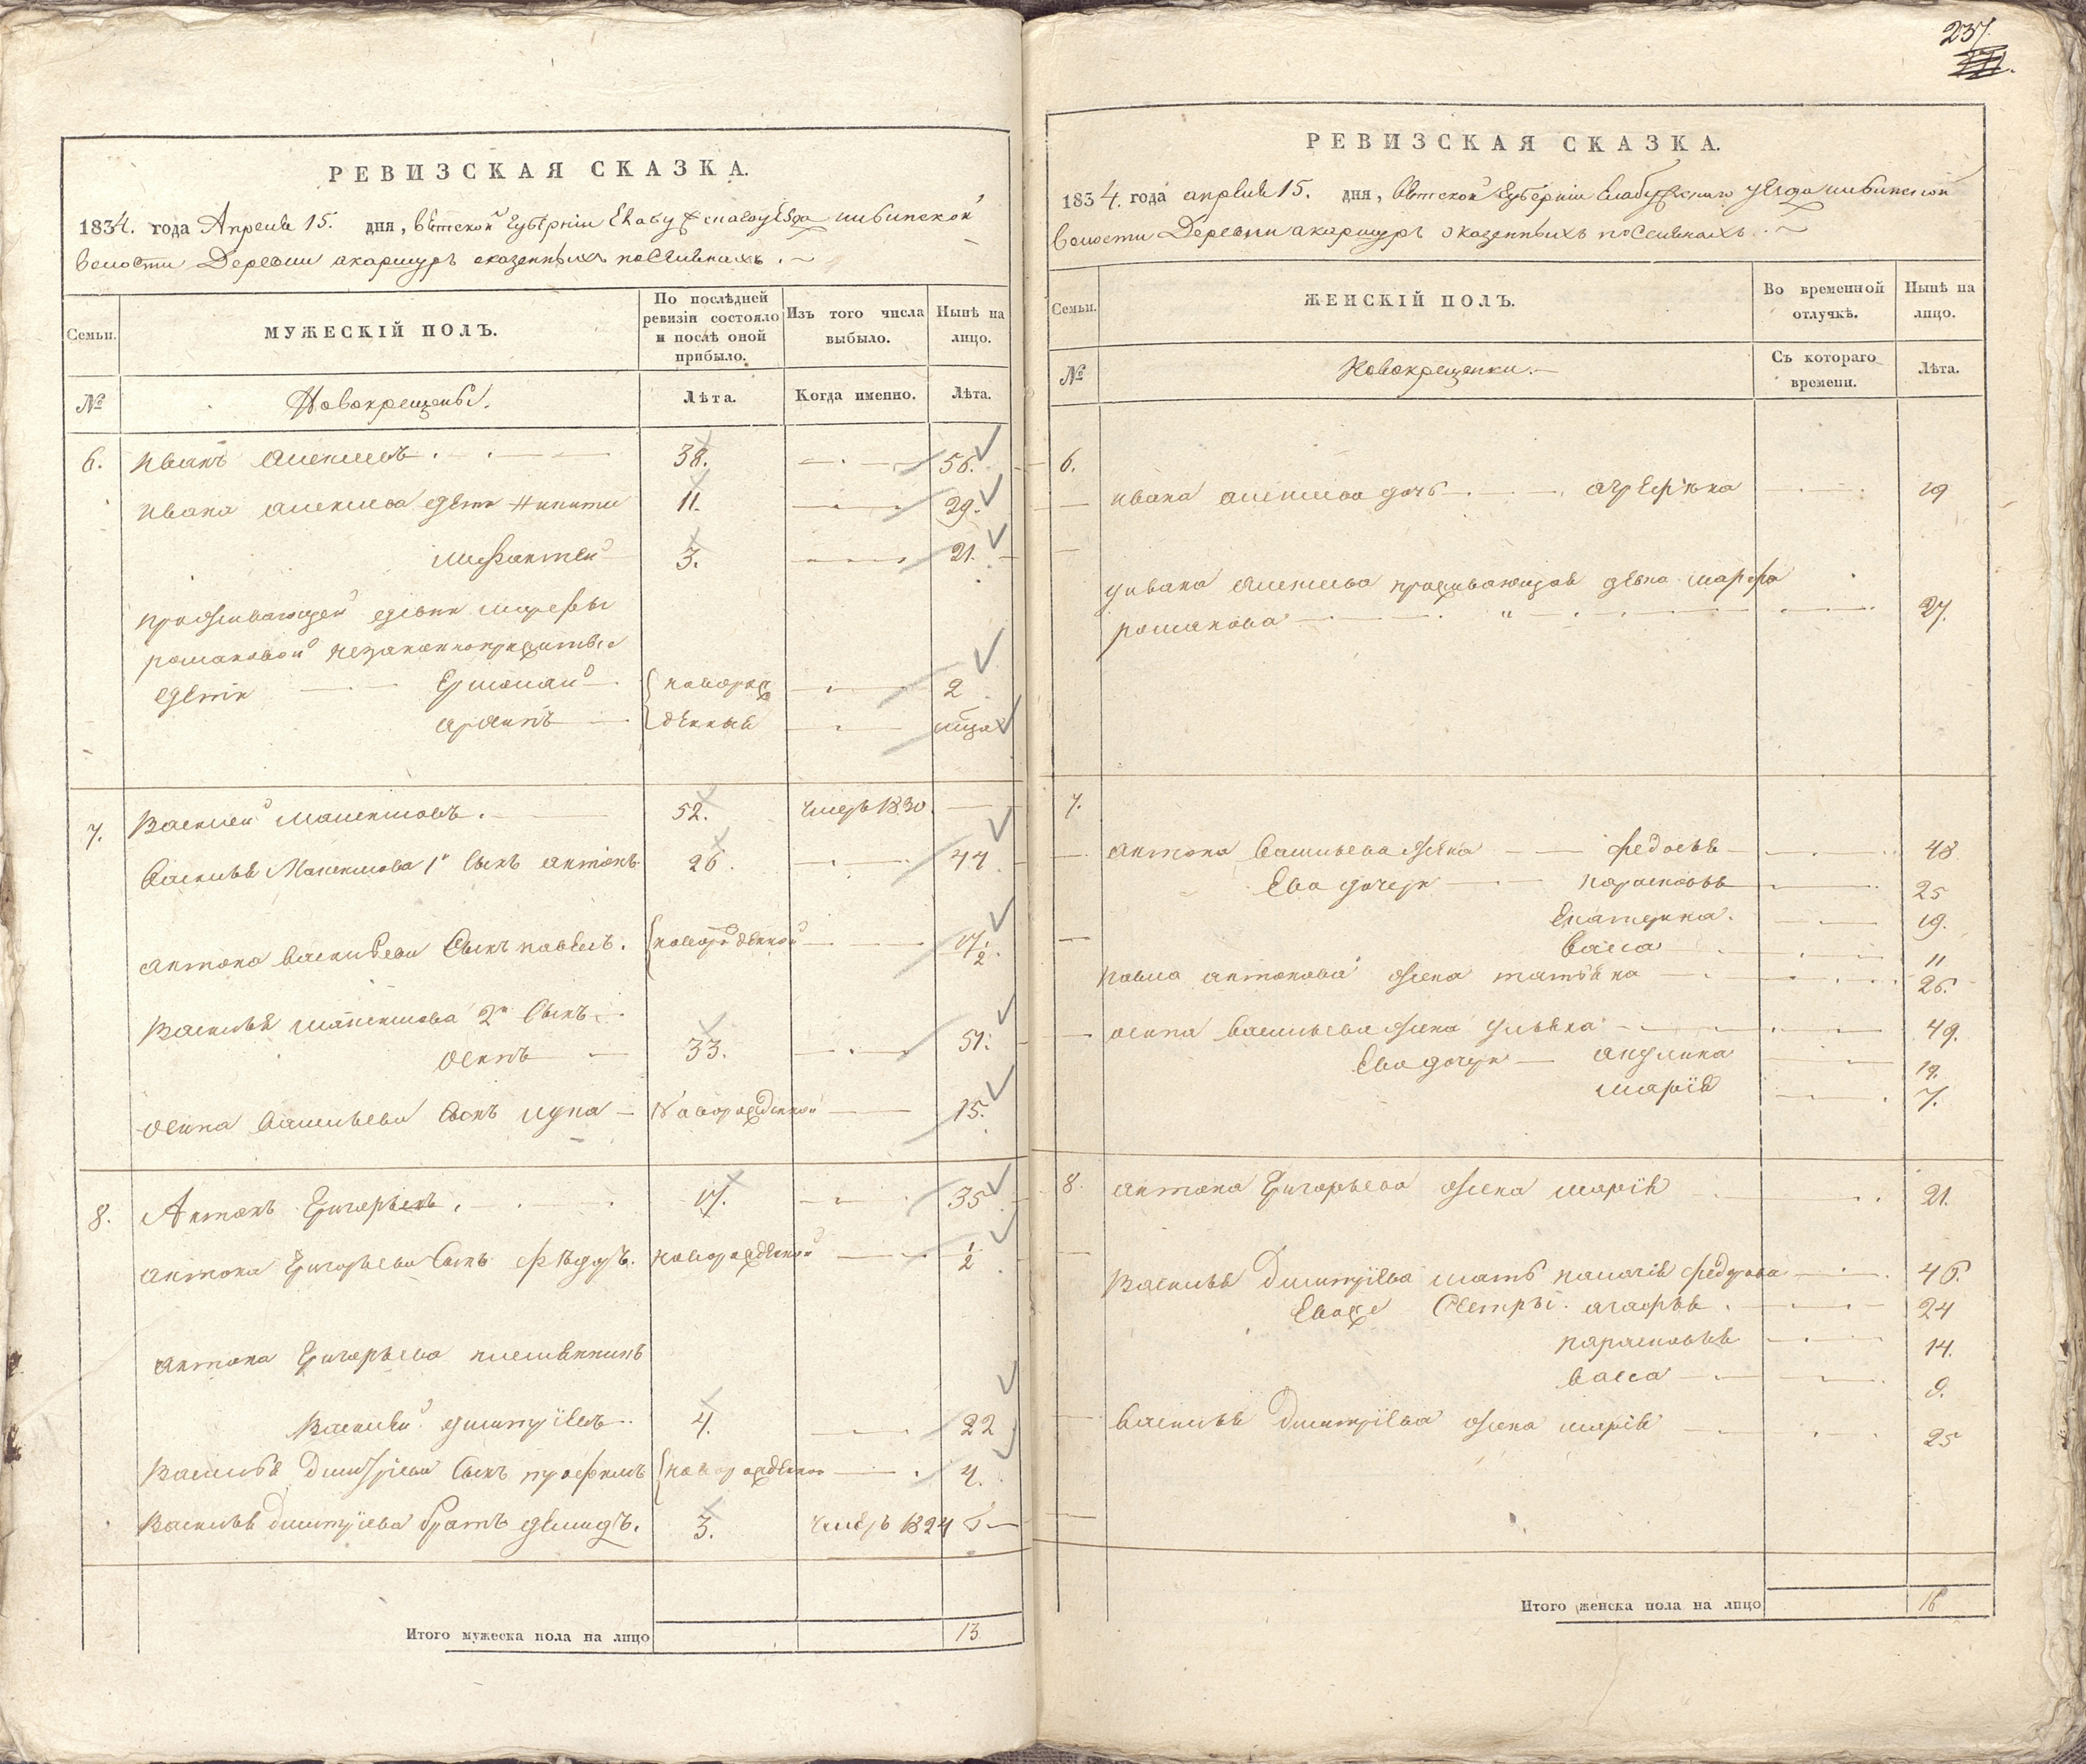 РЕВИЗСКАЯ СКАЗКА.
1834. года Апреля 15. дня, Вятской Губернiи Елабужскаго уезда
волости Деревни Акаршуръ
Семьи.
МУЖЕСКIЙ ПОЛЪ.
По послѣдней ревизiи состояло и послѣ оной прибыло.
Изъ того числа выбыло.
Нынѣ на лицо.
№
Новокрещены.
Лѣта.
Когда именно.
Лѣта.
6. Иванъ Алексѣевъ 38. 56.
Ивана Алексѣева дѣти Никита 11. 29.
3. 21.
проживающей девки Марфы
Романовой незаконноприжитые
дѣти Ермолай новорож 2
Архипъ денные
7. Василей Максимовъ. 52. умеръ 1830.
Василья Максимова 1й сынъ Антонъ 26. 44
Антона Васильева сынъ Павелъ. новорожденной 17 1/2.
Василья Максимова 2й сынъ
Осипъ 33. 51.
Осипа Васильева сынъ Лука новорожденной 15.
8. Антонъ Григорьевъ. 17. 35
Антона Григорьева сынъ Федоръ. новорожденной 1/2
Антона Григорьева племянникъ
Василей Дмитрiевъ 4. 22
Василья Дмитрiева сынъ Трофимъ новорожденной 4.
Василья Дмитрiева братъ Демидъ. 3. умеръ 1824
Итого мужеска пола на лицо 13
237.
РЕВИЗСКАЯ СКАЗКА.
1834. года апреля 15. дня, Вятской Губернiи Елабужскаго уезда
волости Деревни Акаршуръ
Семьи.
ЖЕНСКIЙ ПОЛЪ.
Во временной отлучкѣ.
Нынѣ на лицо.
№
Новокрещенки.
Съ котораго времени.
Лѣта.
6.
Ивана Алексѣева дочь Агрефена 19
у Ивана Алексѣева проживающая девка Марфа
Романова 27.
7.
Антона Васильева жена Федосья 48
Ево дочери Парасковья 25
Екатерина. 19.
Васса 11
Павла Антонова жена Татьяна 26.
Осипа Васильева жена Ульяна 49.
Ево дочери Акулина 19.
Марiя 7.
8. Антона Григорьева жена Марiя 21.
Василья Дмитрiева мать Палагiя Федорова 46.
Евоже сестры. Агафья 24
Парасковья 14.
Васса 9.
Василья Дмитрiева жена Марiя 25
Итого женска пола на лицо 16